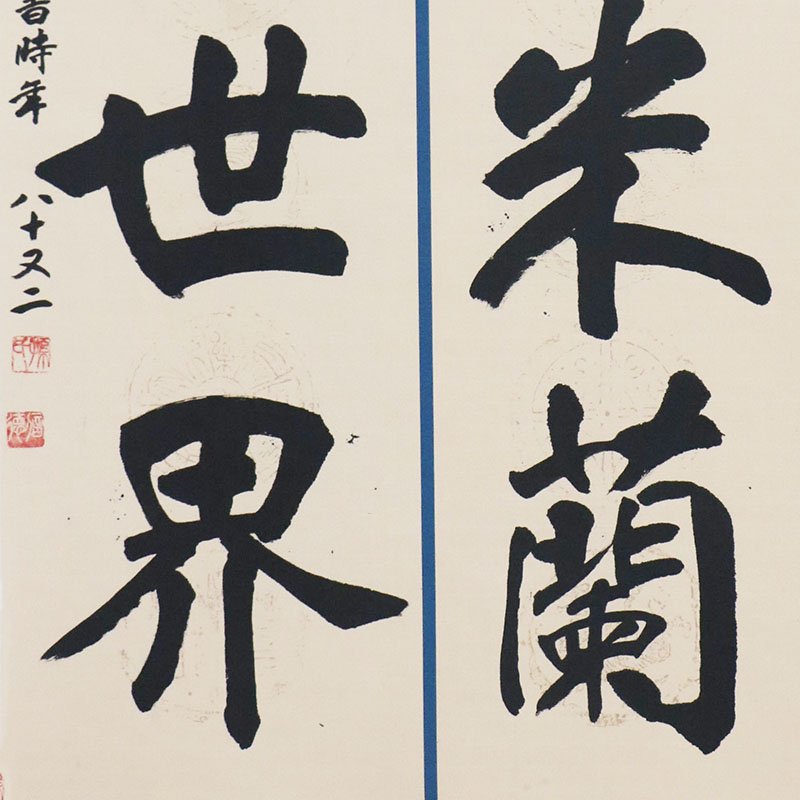 米蘭
世界
書時年八十又二